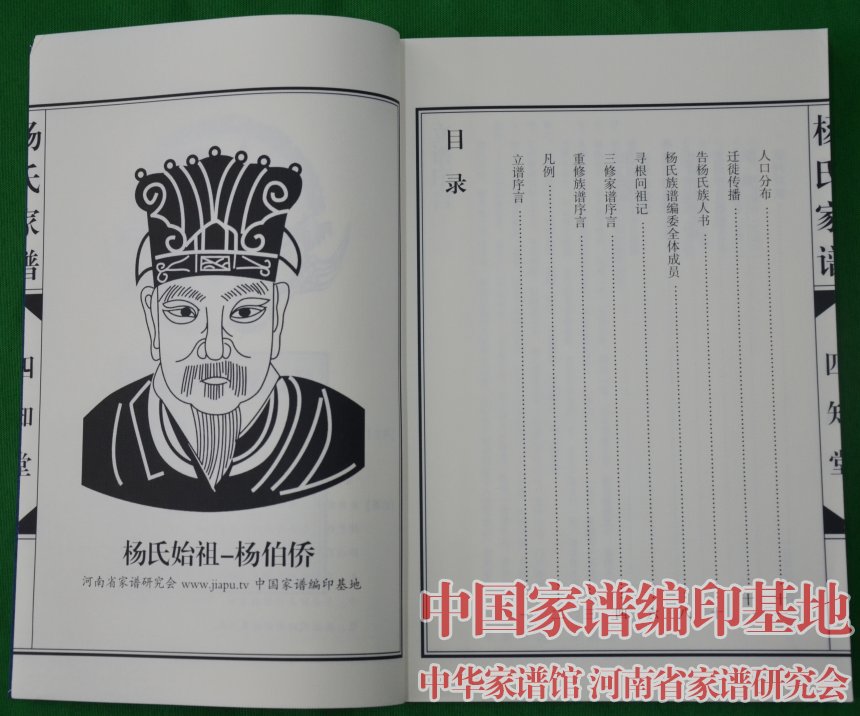 杨氏家谱
四知堂
杨氏始祖-杨伯侨
河南省家谱研究会 www.jiapu.tv 中国家谱编印基地
目录
立谱序言
凡例
重修族谱序言
三修家谱序言
寻根问祖记
杨氏族谱编委全体成员
告杨氏族人书
迁徙传播
人口分布
杨氏家谱
四知堂
中国家谱编印基地
中华家谱馆 河南省家谱研究会